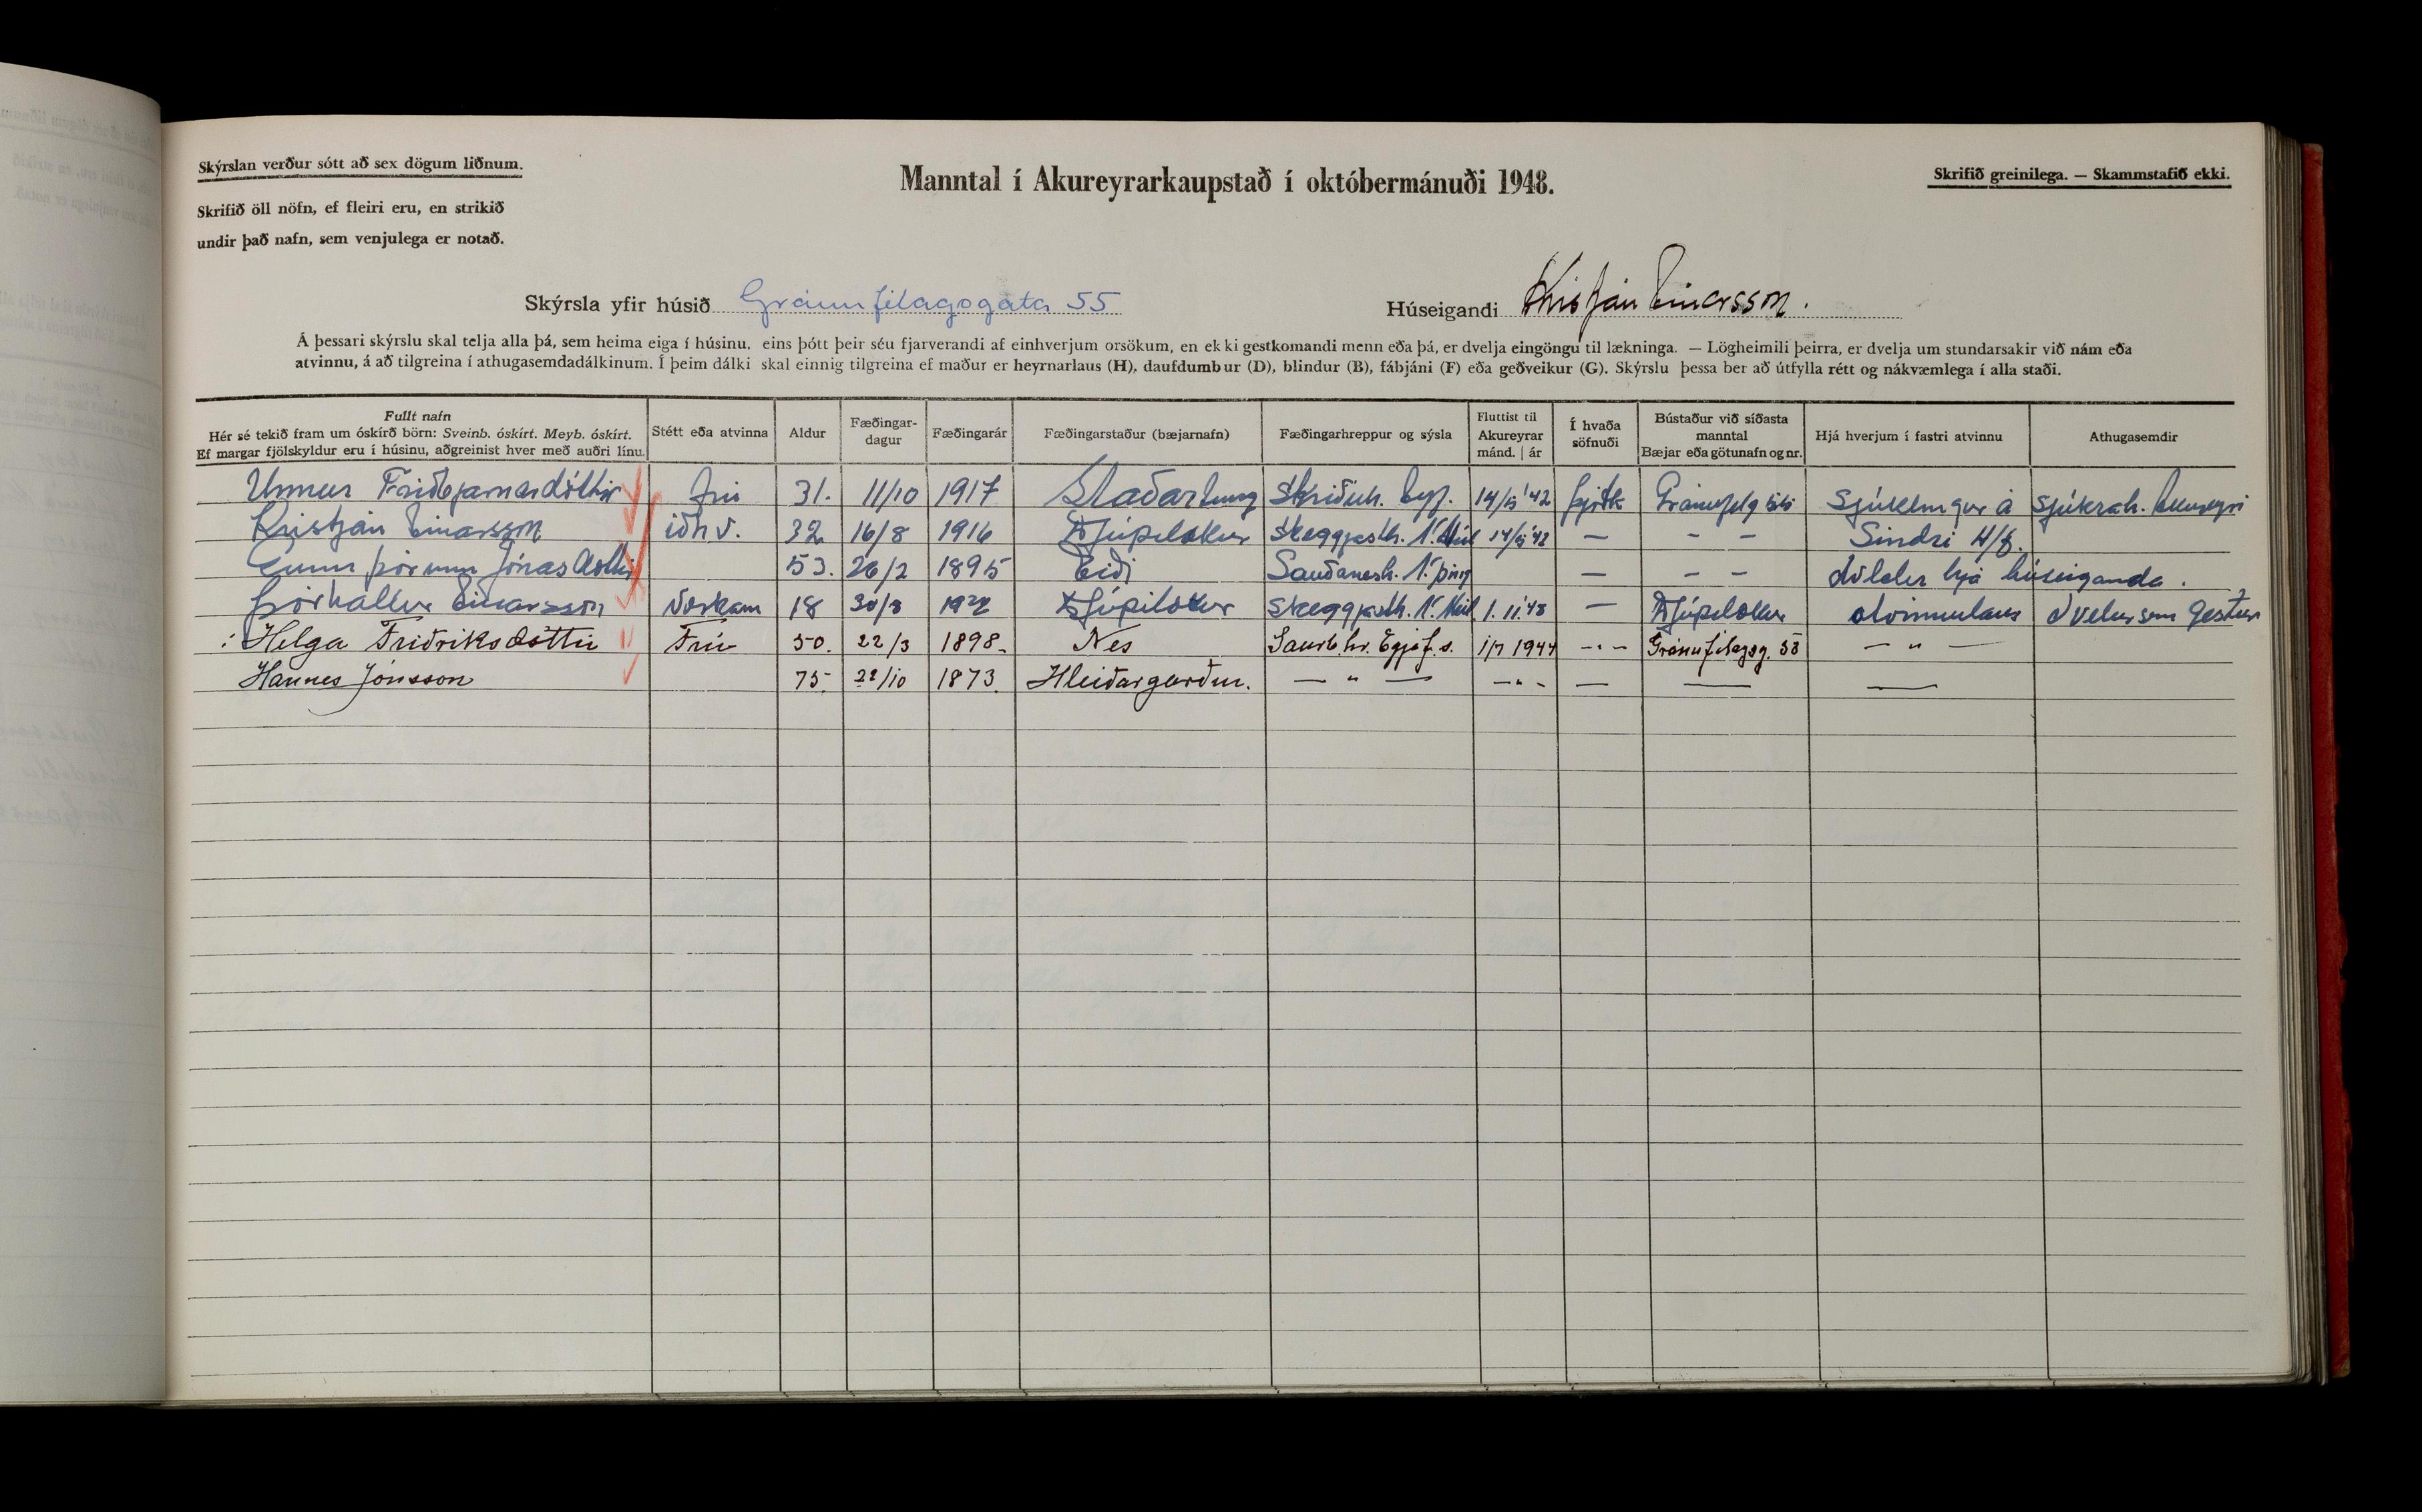 Skýrslan verður sótt að sex dögum liðnum.
Skrifið öll nöfn, ef fleiri eru, en strikið
undir það nafn, sem venjulega er notað.
Manntal í Akureyrarkaupstað í októbermánuði 1948.
Skrifið greinilega. — Skammstafið ekki.
Skýrsla yfir húsið Gránufélagsgata 55
Húseigandi Kristján Einarsson.
Á þessari skýrslu skal telja alla þá, sem heima eiga í húsinu, eins þótt þeir séu fjarverandi af einhverjum orsökum, en ekki gestkomandi menn eða þá, er dvelja eingöngu til lækninga. — Lögheimili þeirra, er dvelja um stundarsakir við nám eða
atvinnu, á að tilgreina í athugasemdadálkinum. Í þeim dálki skal einnig tilgreina ef maður er heyrnarlaus (H), daufdumbur (D), blindur (B), fábjáni (F) eða geðveikur (G). Skýrslu þessa ber að útfylla rétt og nákvæmlega í alla staði.
Fullt nafn
Hér sé tekið fram um óskírð börn: Sveinb. óskírt. Meyb. óskírt.
Ef margar fjölskyldur eru í húsinu, aðgreinist hver með auðri línu.
Stétt eða atvinna
Aldur
Fæðingar-
dagur
Fæðingarár
Fæðingarstaður (bæjarnafn)
Fæðingarhreppur og sýsla
Fluttist til
Akureyrar
mánd. | ár
Í hvaða
söfnuði
Bústaður við síðasta
manntal
Bæjar eða götunafn og nr.
Hjá hverjum í fastri atvinnu
Athugasemdir
Unnur Friðbjarnardóttir frú 31. 11/10 1917 Staðartunga Skriðuh. Eyf. 14/5 '42 þjóðk Sjúklingur á Sjúkrah. Akureyri
Kristján Einarsson iðnv. 32 16/8 1916 Djúpilækur Skeggjasth. N. Múl 14/5 '42 — - - Sindri H/f.
Gunnþórunn Jónasdóttir 53. 26/2 1895 Eiði Sauðanesh. N. Þing — - - dvelur hjá húseiganda.
Þórhallur Einarsson Verkam 18 30/8 Djúpilækur Skeggjasth. N. Múl. 1. 11. '48 — Djúpilækur atvinnulaus dvelur sem gestur
Helga Friðriksdóttir Frú 50. 22/3 1898. Nes Saurb.hr. Eyjaf.s. 1/7 1944 - " - Gránufélagsg. 55 — " —
Hannes Jónsson 75. 22/10 1873. Hleiðargarður. — " — - " - — — —